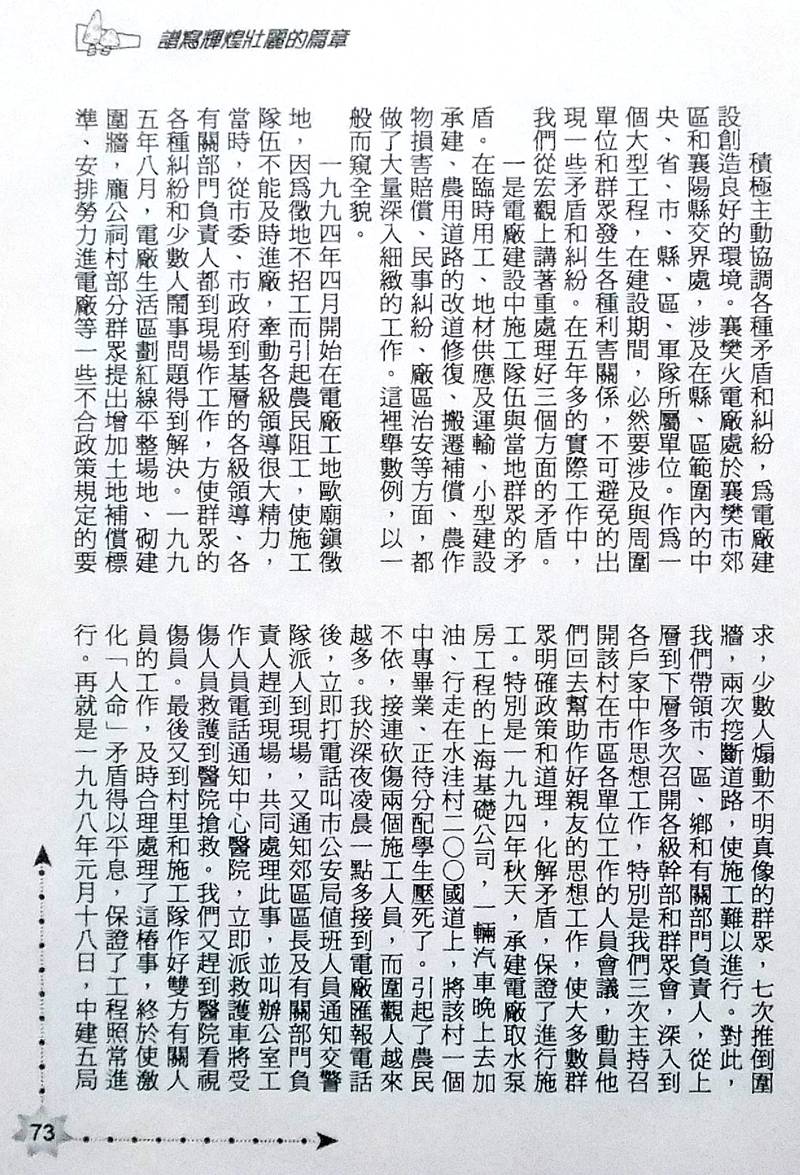 譜寫輝煌壯麗的篇章
積極主動協調各種矛盾和糾紛，爲電廠建
設創造良好的環境。襄樊火電廠處於襄樊市郊
區和襄陽縣交界處，涉及在縣、區範圍內的中
央、省、市、縣、區、軍隊所屬單位。作爲一
個大型工程，在建設期間，必然要涉及與周圍
單位和群眾發生各種利害關係，不可避免的出
現一些矛盾和糾紛。在五年多的實際工作中，
我們從宏觀上講著重處理好三個方面的矛盾。
一是電廠建設中施工隊伍與當地群眾的矛
盾。在臨時用工、地材供應及運輸、小型建設
承建、農用道路的改道修復、搬遷補償、農作
物損害賠償、民事糾紛、廠區治安等方面，都
做了大量深入細緻的工作。這裡舉數例，以一
般而窺全貌。
一九九四年四月開始在電廠工地歐廟鎮徵
地，因爲徵地不招工而引起農民阻工，使施工
隊伍不能及時進廠，牽動各級領導很大精力，
當時，從市委、市政府到基層的各級領導、各
有關部門負責人都到現場作工作，方使群眾的
各種糾紛和少數人鬧事問題得到解決。一九九
五年八月，電廠生活區劃紅線平整場地、砌建
圍牆，龐公祠村部分群眾提出增加土地補償標
準、安排勞力進電廠等一些不合政策規定的要
求，少數人煽動不明真像的群眾，七次推倒圍
牆，兩次挖斷道路，使施工難以進行。對此，
我們帶領市、區、鄉和有關部門負責人，從上
層到下層多次召開各級幹部和群眾會，深入到
各戶家中作思想工作，特別是我們三次主持召
開該村在市區各單位工作的人員會議，動員他
們回去幫助作好親友的思想工作，使大多數群
眾明確政策和道理，化解矛盾，保證了進行施
工。特別是一九九四年秋天，承建電廠取水泵
房工程的上海基礎公司，一輛汽車晚上去加
油、行走在水洼村二〇〇國道上，將該村一個
中專畢業、正待分配學生壓死了。引起了農民
不依，接連砍傷兩個施工人員，而圍觀人越來
越多。我於深夜凌晨一點多接到電廠匯報電話
後，立即打電話叫市公安局值班人員通知交警
隊派人到現場，又通知郊區區長及有關部門負
責人趕到現場，共同處理此事，並叫辦公室工
作人員電話通知中心醫院，立即派救護車將受
傷人員救護到醫院搶救。我們又趕到醫院看視
傷員。最後又到村里和施工隊作好雙方有關人
員的工作，及時合理處理了這樁事，終於使激
化「人命」矛盾得以平息，保證了工程照常進
行。再就是一九九八年元月十八日，中建五局
73